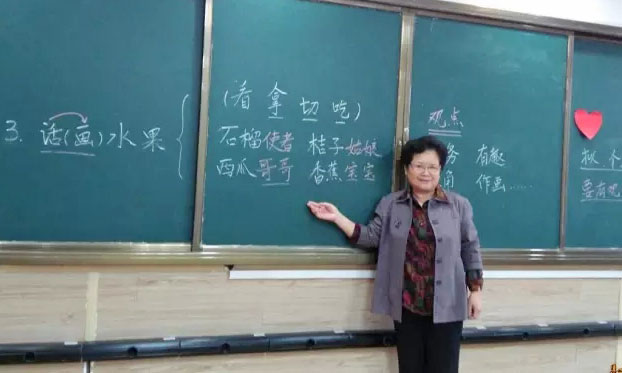 3. 话(画)水果
(看 拿 切 吃)
石榴使者 桔子姑娘
西瓜哥哥 香蕉宝宝
观点
务 有趣
角 作画……